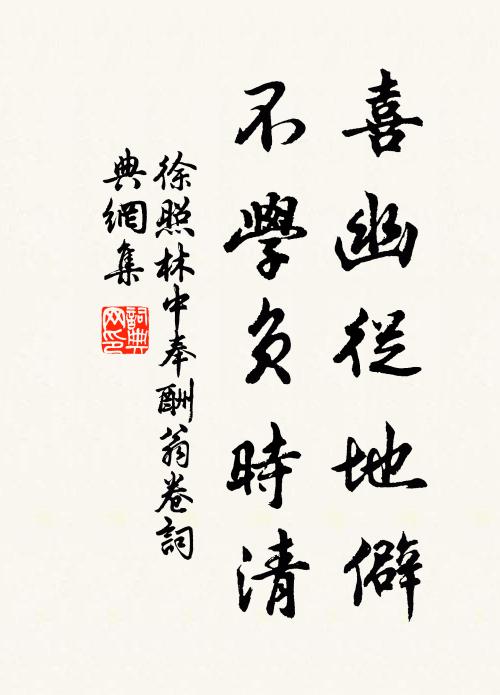 喜幽從地僻
不學負時清
徐照林中奉酬翁卷詞
典網集
詞典
网印